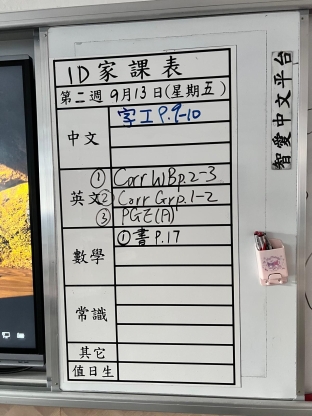 1D家課表
第二週 9月13日(星期五)
中文
字工 P.9-10
英文
① Corr WB p.2-3
② Corr Grp.1-2
③ PGE(A)
數學
① 書 P.17
常識
其它
值日生
智愛中文平台